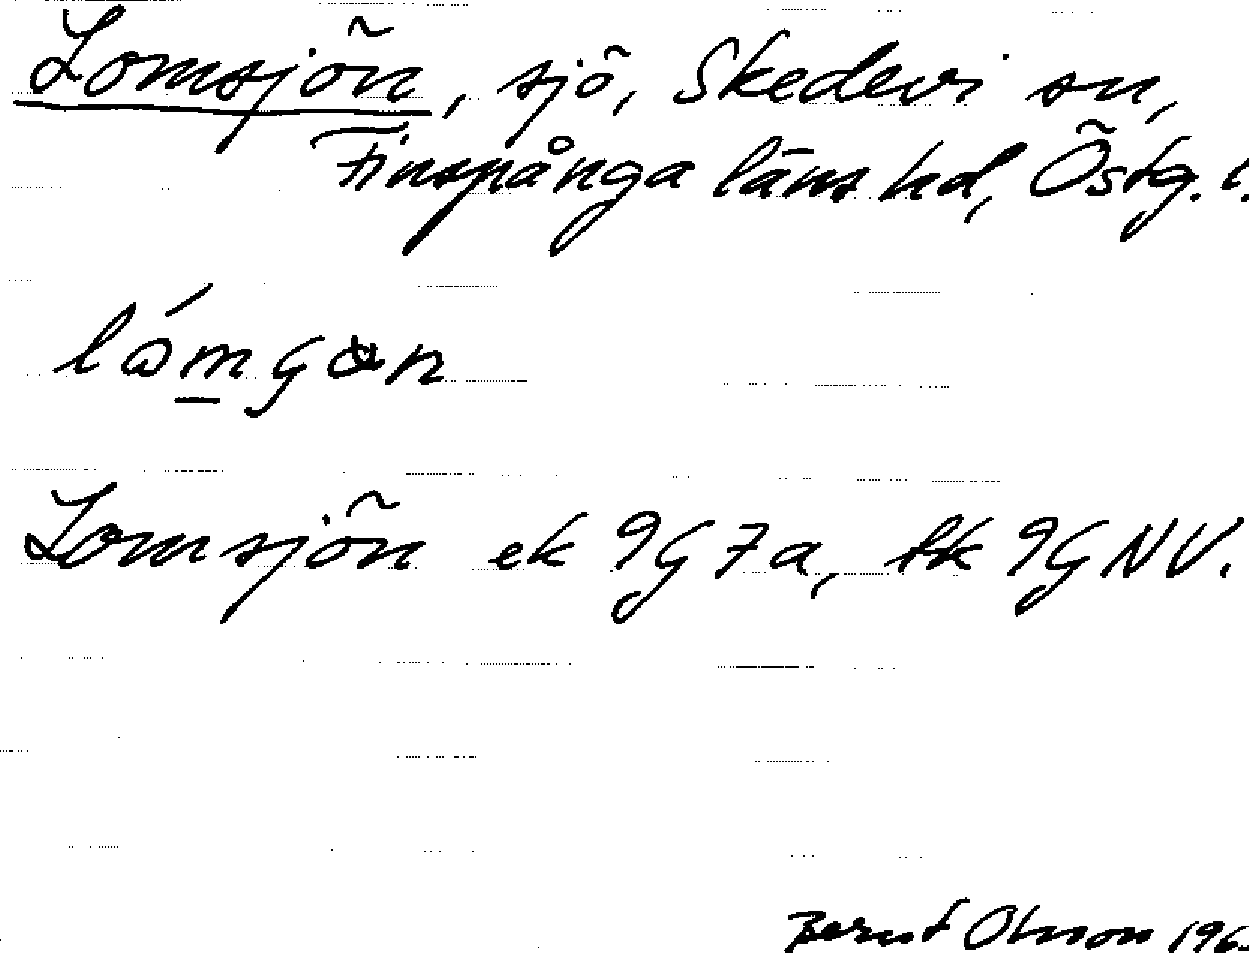 Lomsjön, sjö, Skedevi sn,
Finspånga läns hd, Östg. l.
Lomsjön ek 9G7a, tk 9GNV.
Bernt Olsson 196